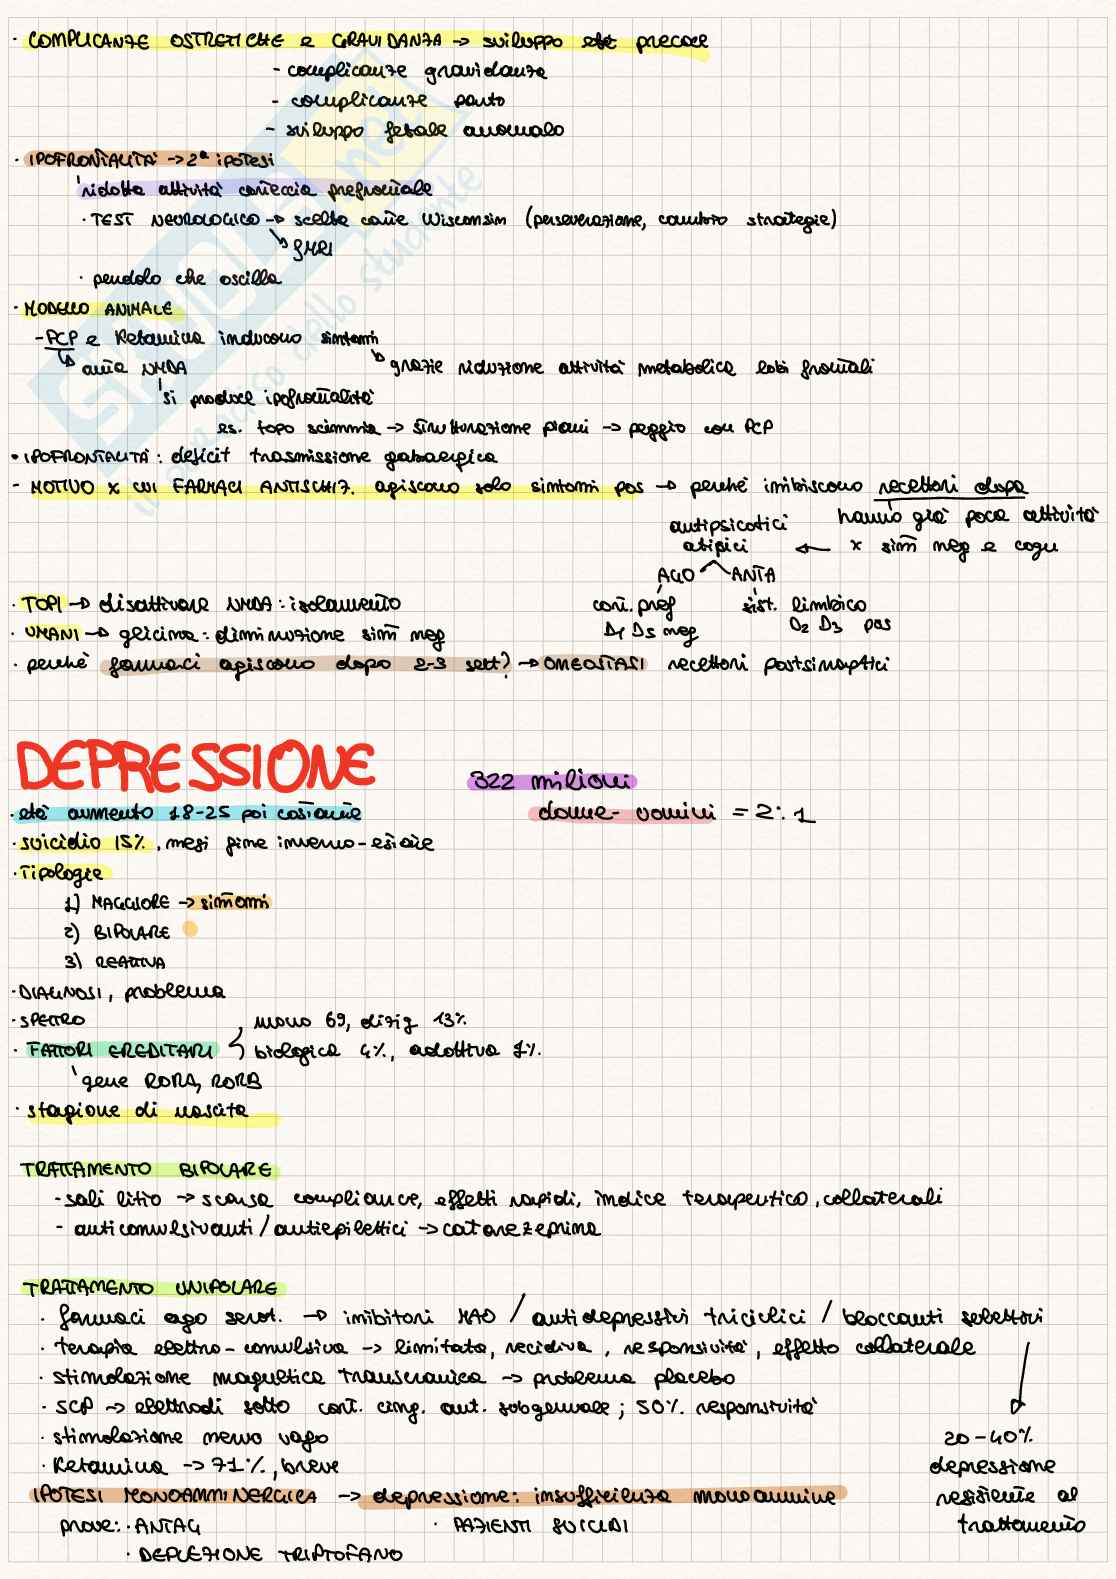 · COMPLICANZE OSTRETICHE e GRAVIDANZA → sviluppo età precoce
- complicanze gravidanza
- complicanze parto
- sviluppo fetale anomalo
· IPOFRONTALITÀ → 2ª ipotesi
ridotta attività corteccia prefrontale
· TEST NEUROLOGICO → scelta carte Wisconsin (perseverazione, cambio strategie)
↘ fMRI
· pendolo che oscilla
· MODELLO ANIMALE
- PCP e Ketamina inducono sintomi
↳ anta NMDA ↘ grazie riduzione attività metabolica lobi frontali
si produce ipofrontalità
es. topo scimmia → strutturazione piani → peggio con PCP
• IPOFRONTALITÀ: deficit trasmissione gabaergica
- MOTIVO x cui FARMACI ANTISCHIZ. agiscono solo sintomi pos → perché inibiscono recettori dopa
antipsicotici hanno già poca attività
atipici ← x sint neg e cogn
AGO ANTA
· TOPI → disattivare NMDA: isolamento cort. pref sist. limbico
· UMANI → glicina: diminuzione sint neg D1 D5 neg D2 D3 pos
· perché farmaci agiscono dopo 2-3 sett? → OMEOSTASI recettori postsinaptici
DEPRESSIONE 322 milioni
· età aumento 18-25 poi costante donne- uomini = 2:1
· suicidio 15%, mesi fine inverno-estate
· Tipologie
1) MAGGIORE → sintomi
2) BIPOLARE
3) REATTIVA
· DIAGNOSI, problema
· SPETTRO mono 69, dizig 13%
· FATTORI EREDITARI biologica 4%, adottiva 1%.
gene RORA, RORB
· stagione di nascita
TRATTAMENTO BIPOLARE
- sali litio → scarsa compliance, effetti rapidi, indice terapeutico, collaterali
- anticonvulsivanti / antiepilettici → catarezeprina
TRATTAMENTO UNIPOLARE
· farmaci ago serot. → inibitori MAO / antidepressivi triciclici / bloccanti selettivi
· terapia elettro-convulsiva → limitata, recidiva, responsività, effetto collaterale
· stimolazione magnetica transcranica → problema placebo
· SCP → elettrodi sotto cort. cing. ant. subgenuale; 50% responsività
· stimolazione nervo vago 20-40%
· Ketamina → 71%, breve depressione
IPOTESI MONOAMMINERGICA → depressione: insufficienza monoammine resistente al
prove: · ANTAG · PAZIENTI SUICIDI trattamento
· DEPLEZIONE TRIPTOFANO